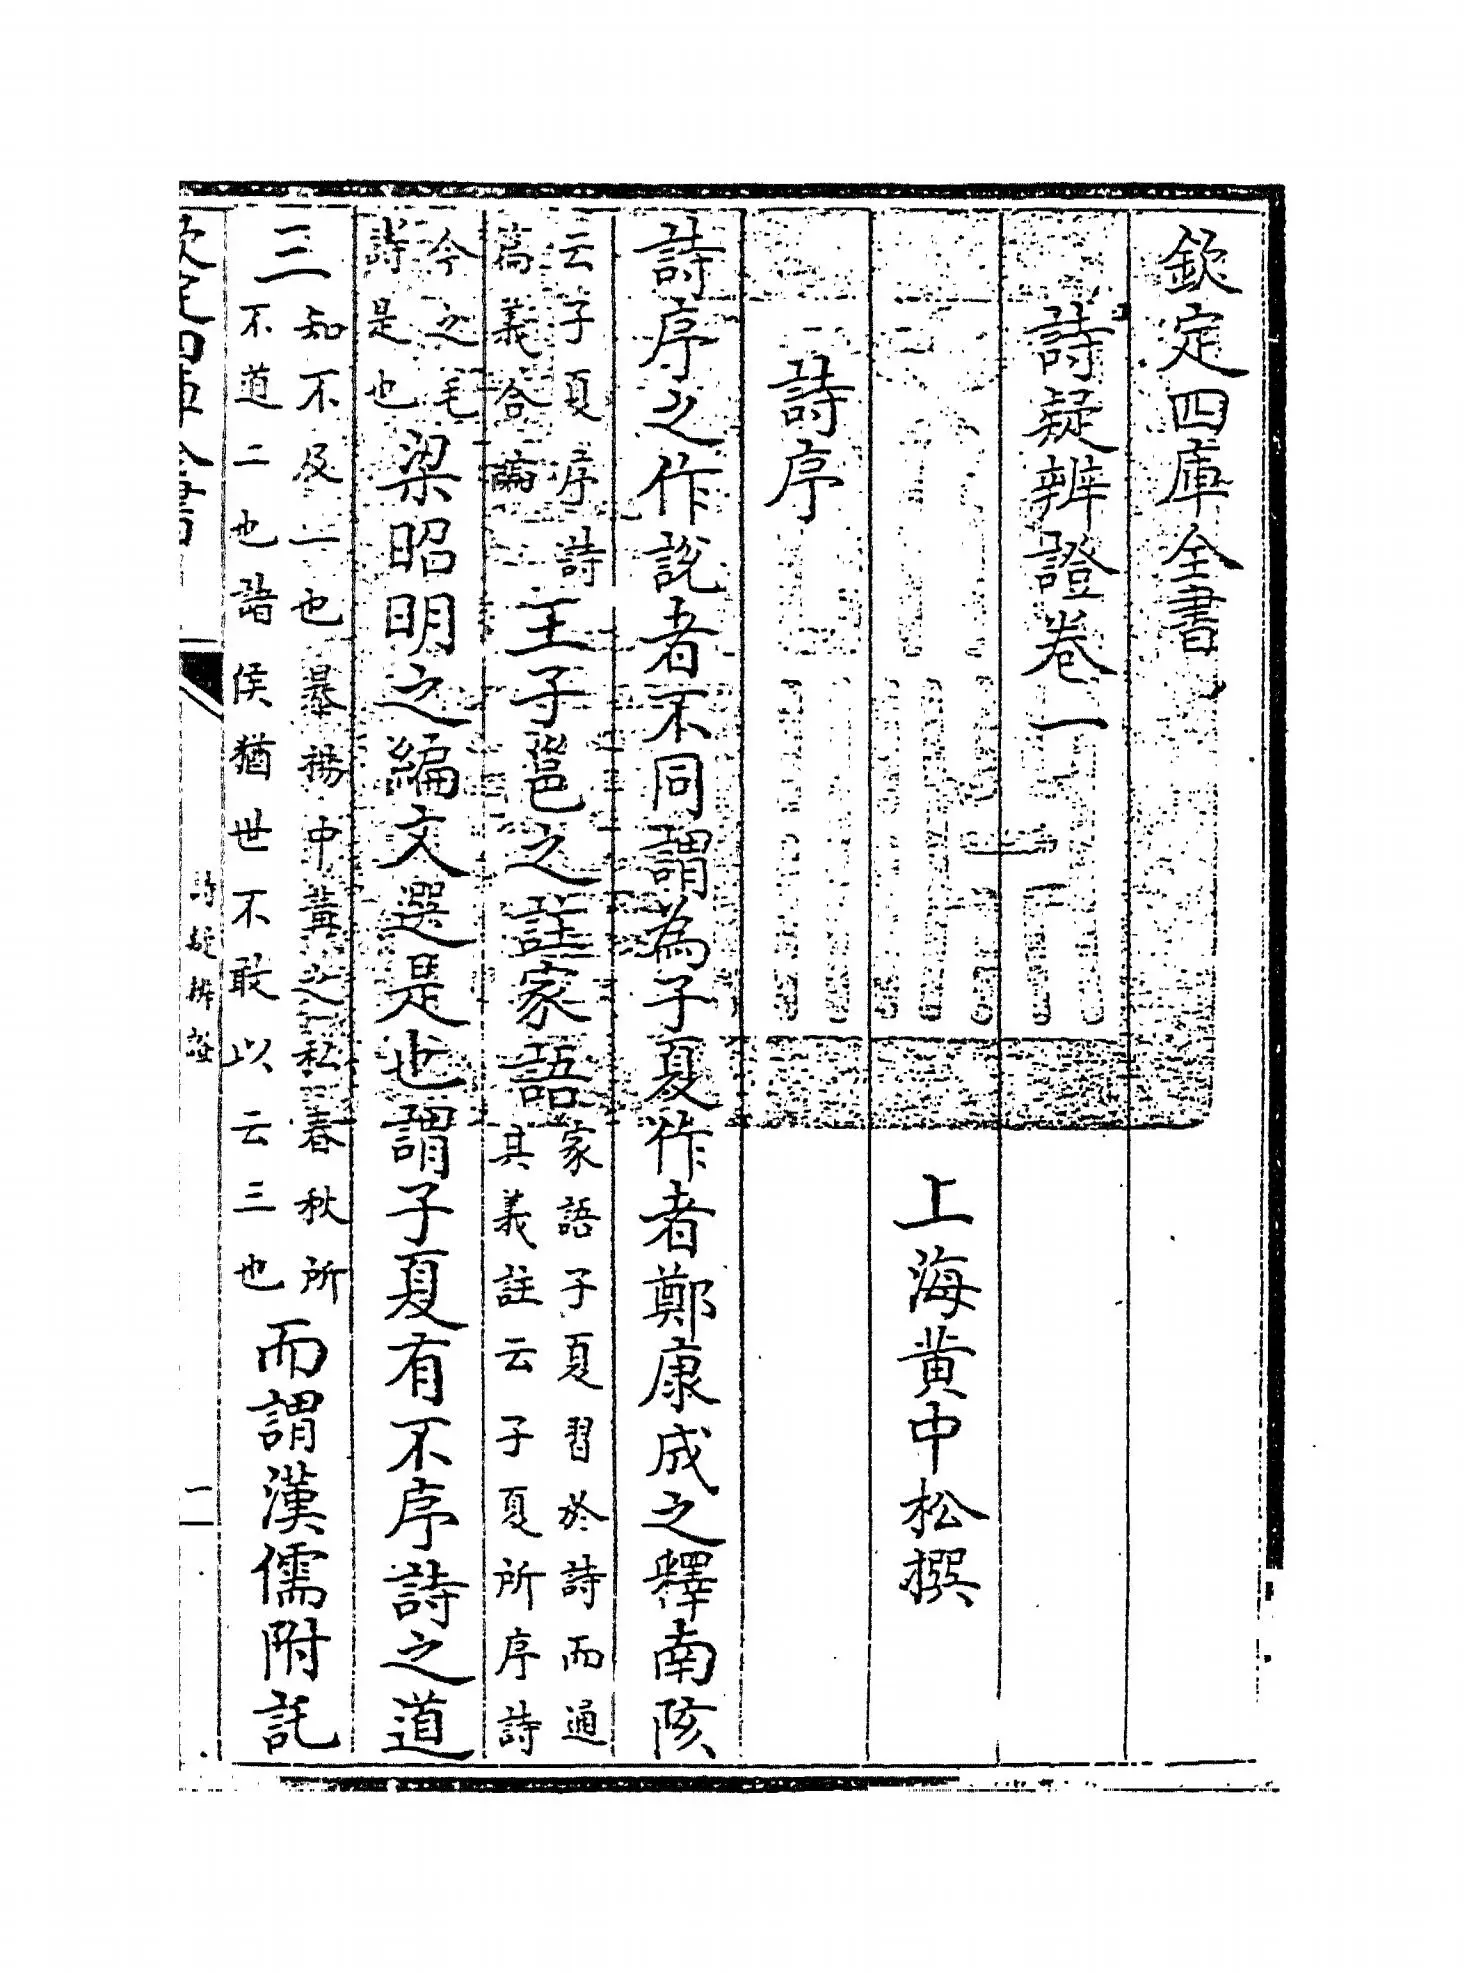 欽定四庫全書
詩疑辨證卷一
上海黃中松撰
詩序
詩序之作說者不同謂為子夏作者鄭康成之釋南陔
云子夏序詩
篇義合編
王子邕之註家語
家語子夏習於詩而通
其義註云子夏所序詩
今之毛
詩是也
梁昭明之編文選是也謂子夏有不序詩之道
三
知不及一也暴揚中冓之私春秋所
不道二也諸侯猶世不敢以云三也
而謂漢儒附託
欽定四庫全書
詩疑辨證
一